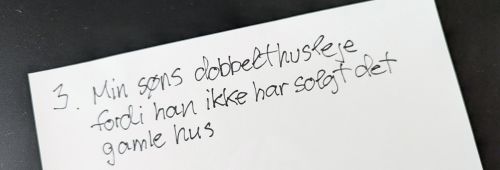 3. Min søns dobbelthusleje
fordi han ikke har solgt det
gamle hus